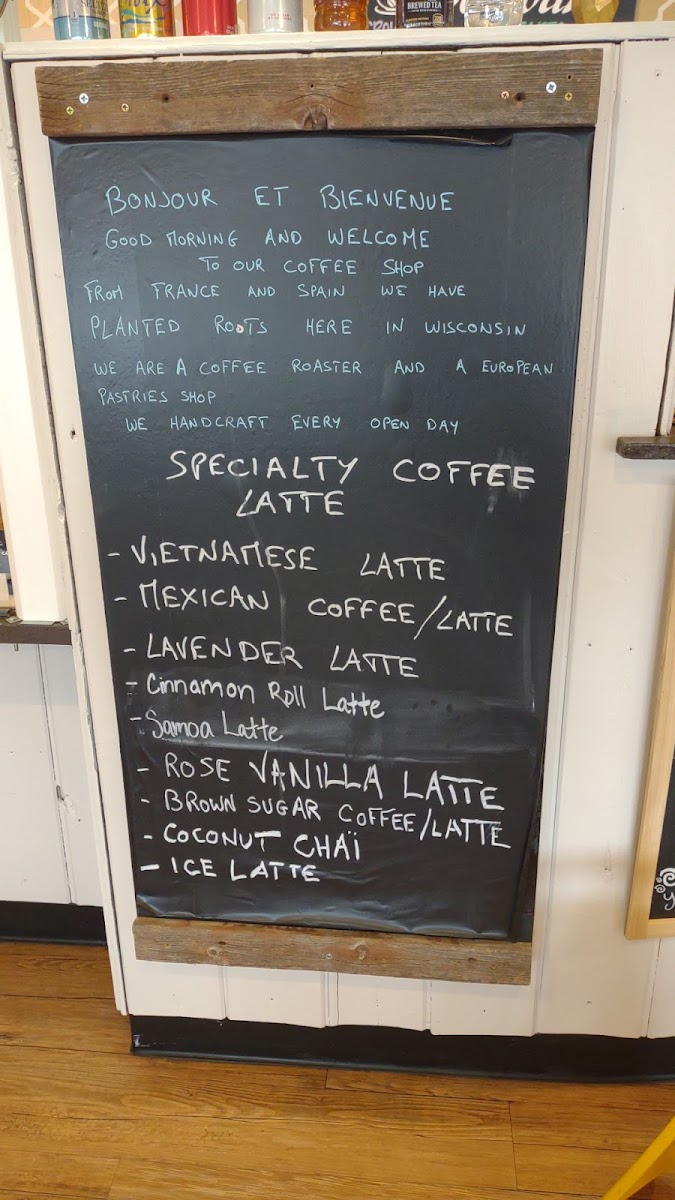 BREWED TEA
BONJOUR ET BIENVENUE
GOOD MORNING AND WELCOME
TO OUR COFFEE SHOP
FROM FRANCE AND SPAIN WE HAVE
PLANTED ROOTS HERE IN WISCONSIN
WE ARE A COFFEE ROASTER AND A EUROPEAN
PASTRIES SHOP
WE HANDCRAFT EVERY OPEN DAY
SPECIALTY COFFEE
LATTE
- VIETNAMESE LATTE
- MEXICAN COFFEE/LATTE
- LAVENDER LATTE
- Cinnamon Roll Latte
- Samoa Latte
- ROSE VANILLA LATTE
- BROWN SUGAR COFFEE/LATTE
- COCONUT CHAÏ
- ICE LATTE